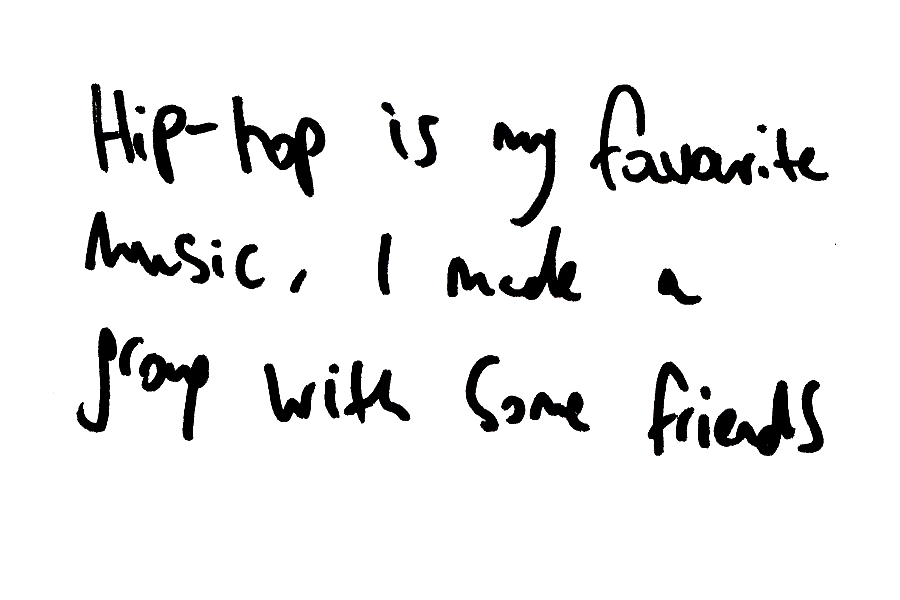 Hip-hop is my favorite
music, I made a
group with some friends